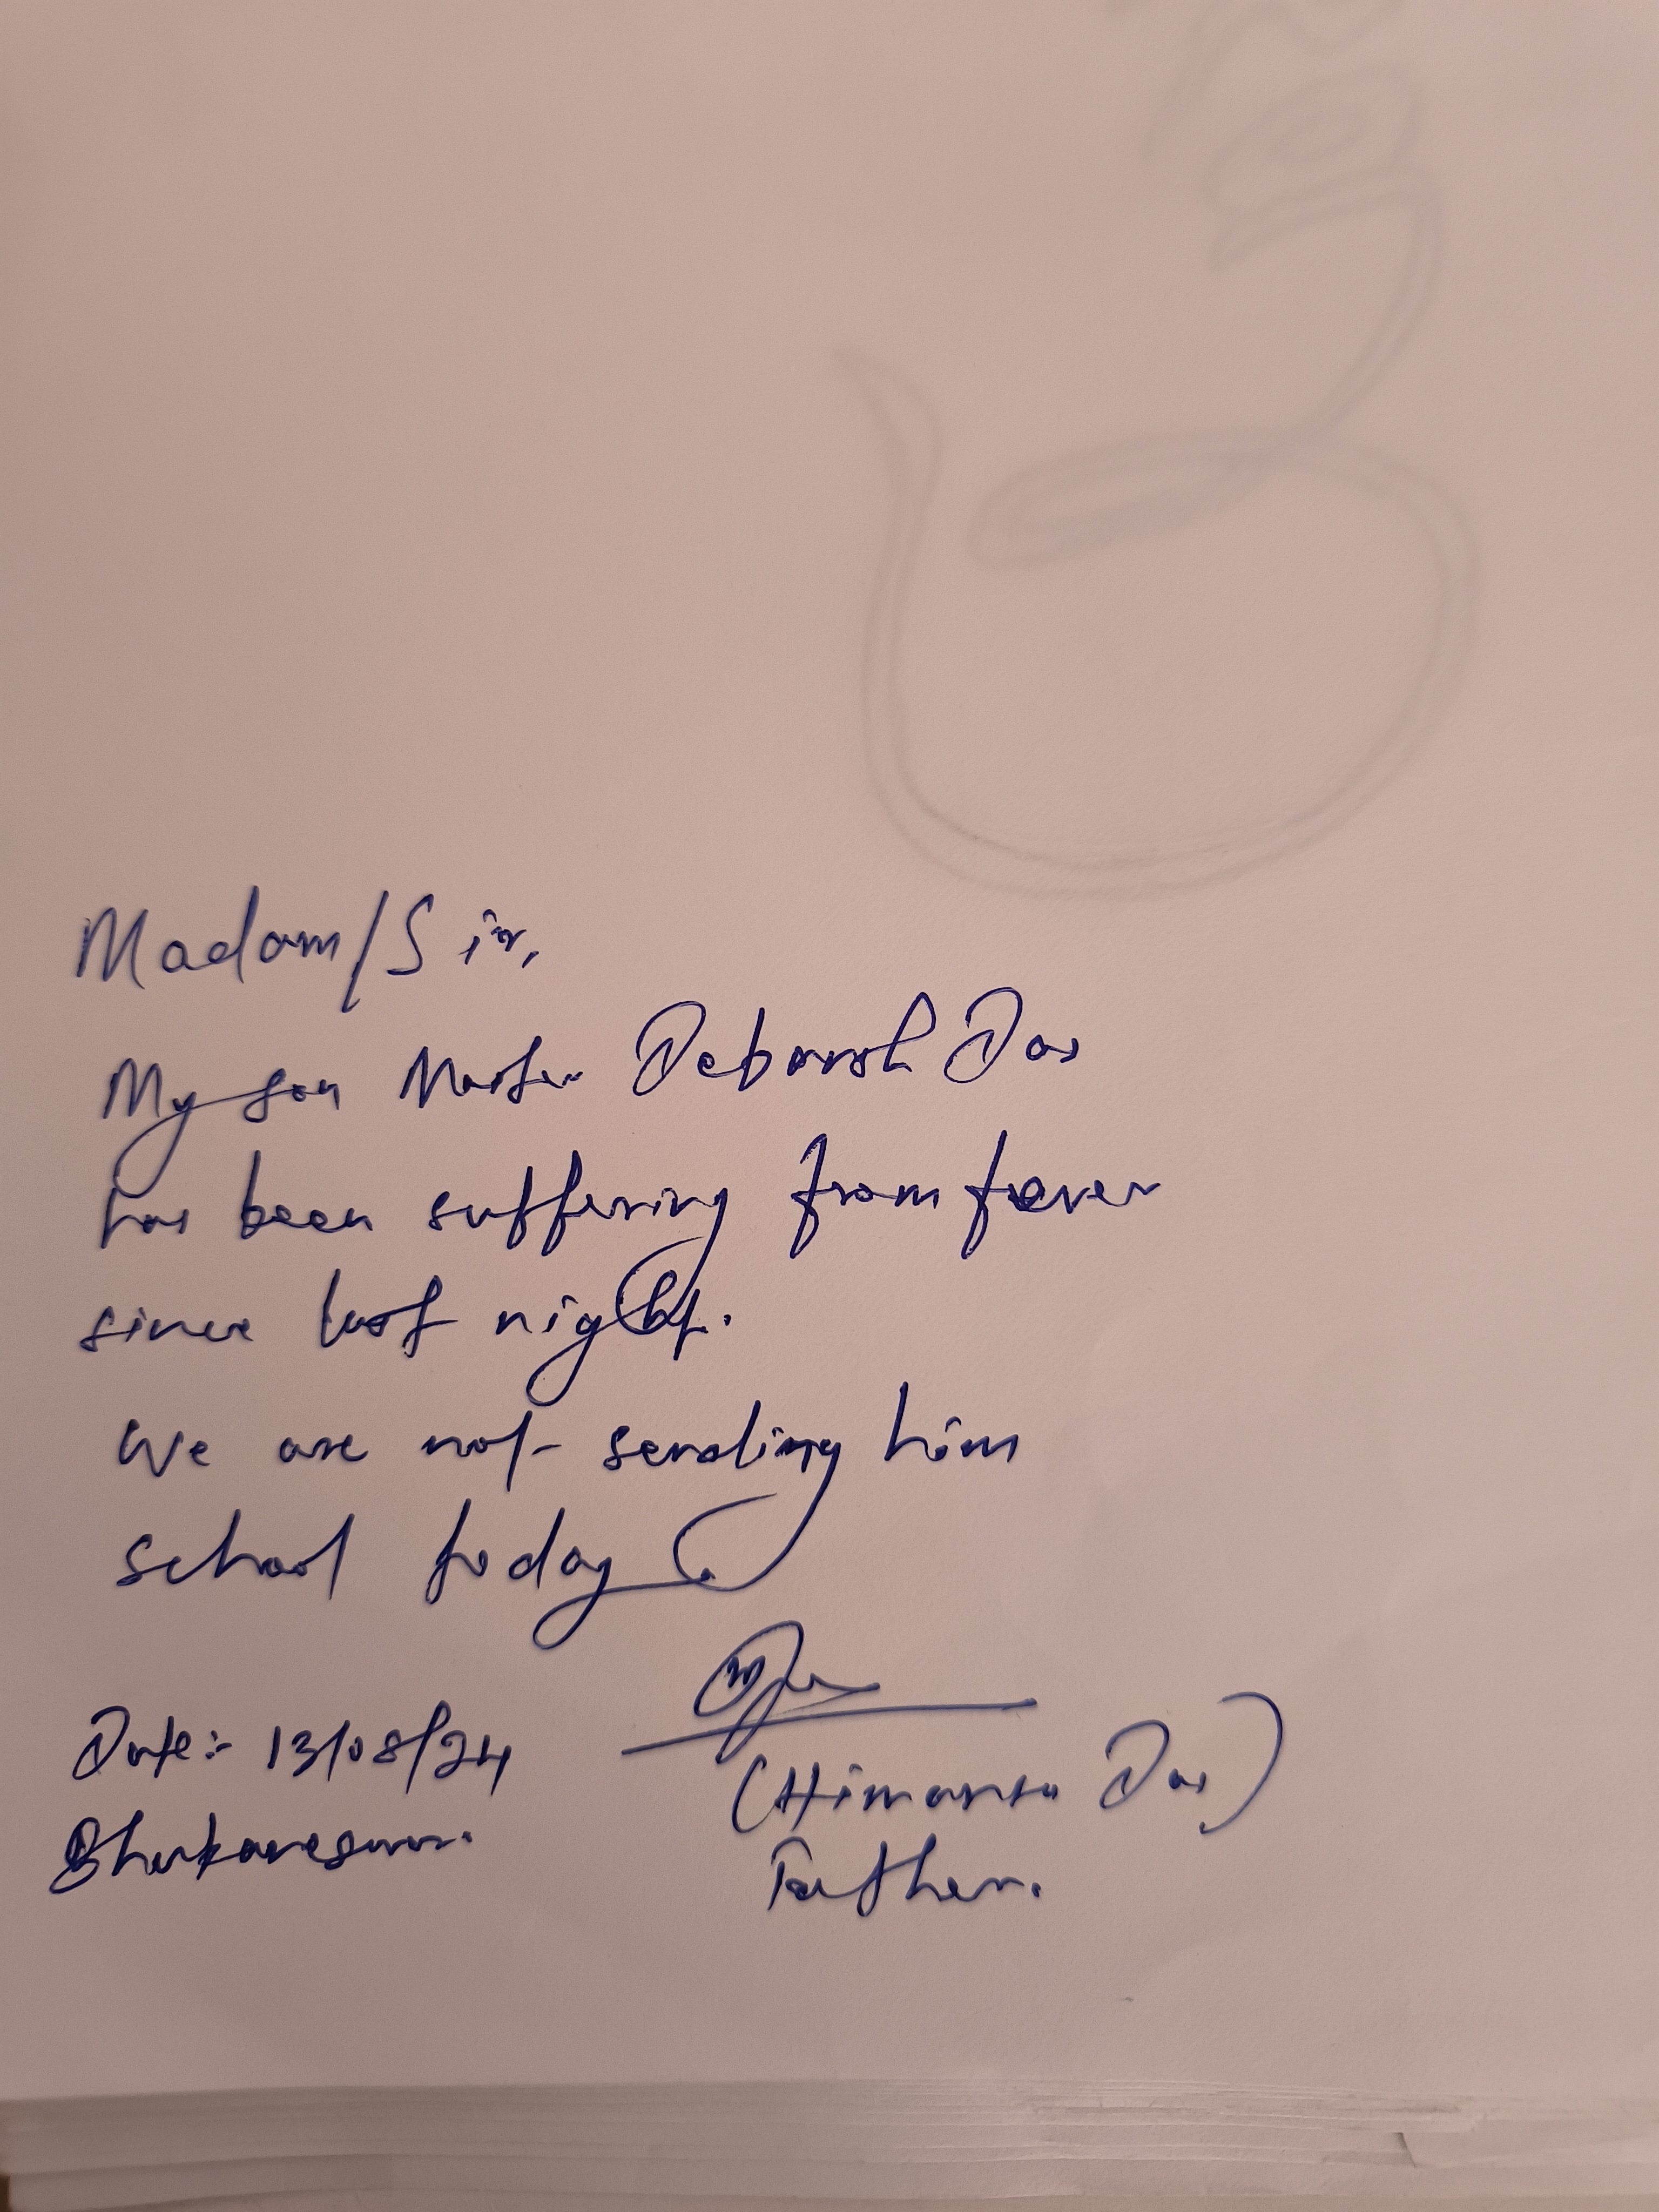 Madam/Sir,
My son Master Debarsh Das
has been suffering from fever
since last night.
We are not sending him
school today.
Date:- 13/08/24
(Himansu Das)
Bhubaneswar.
Father.